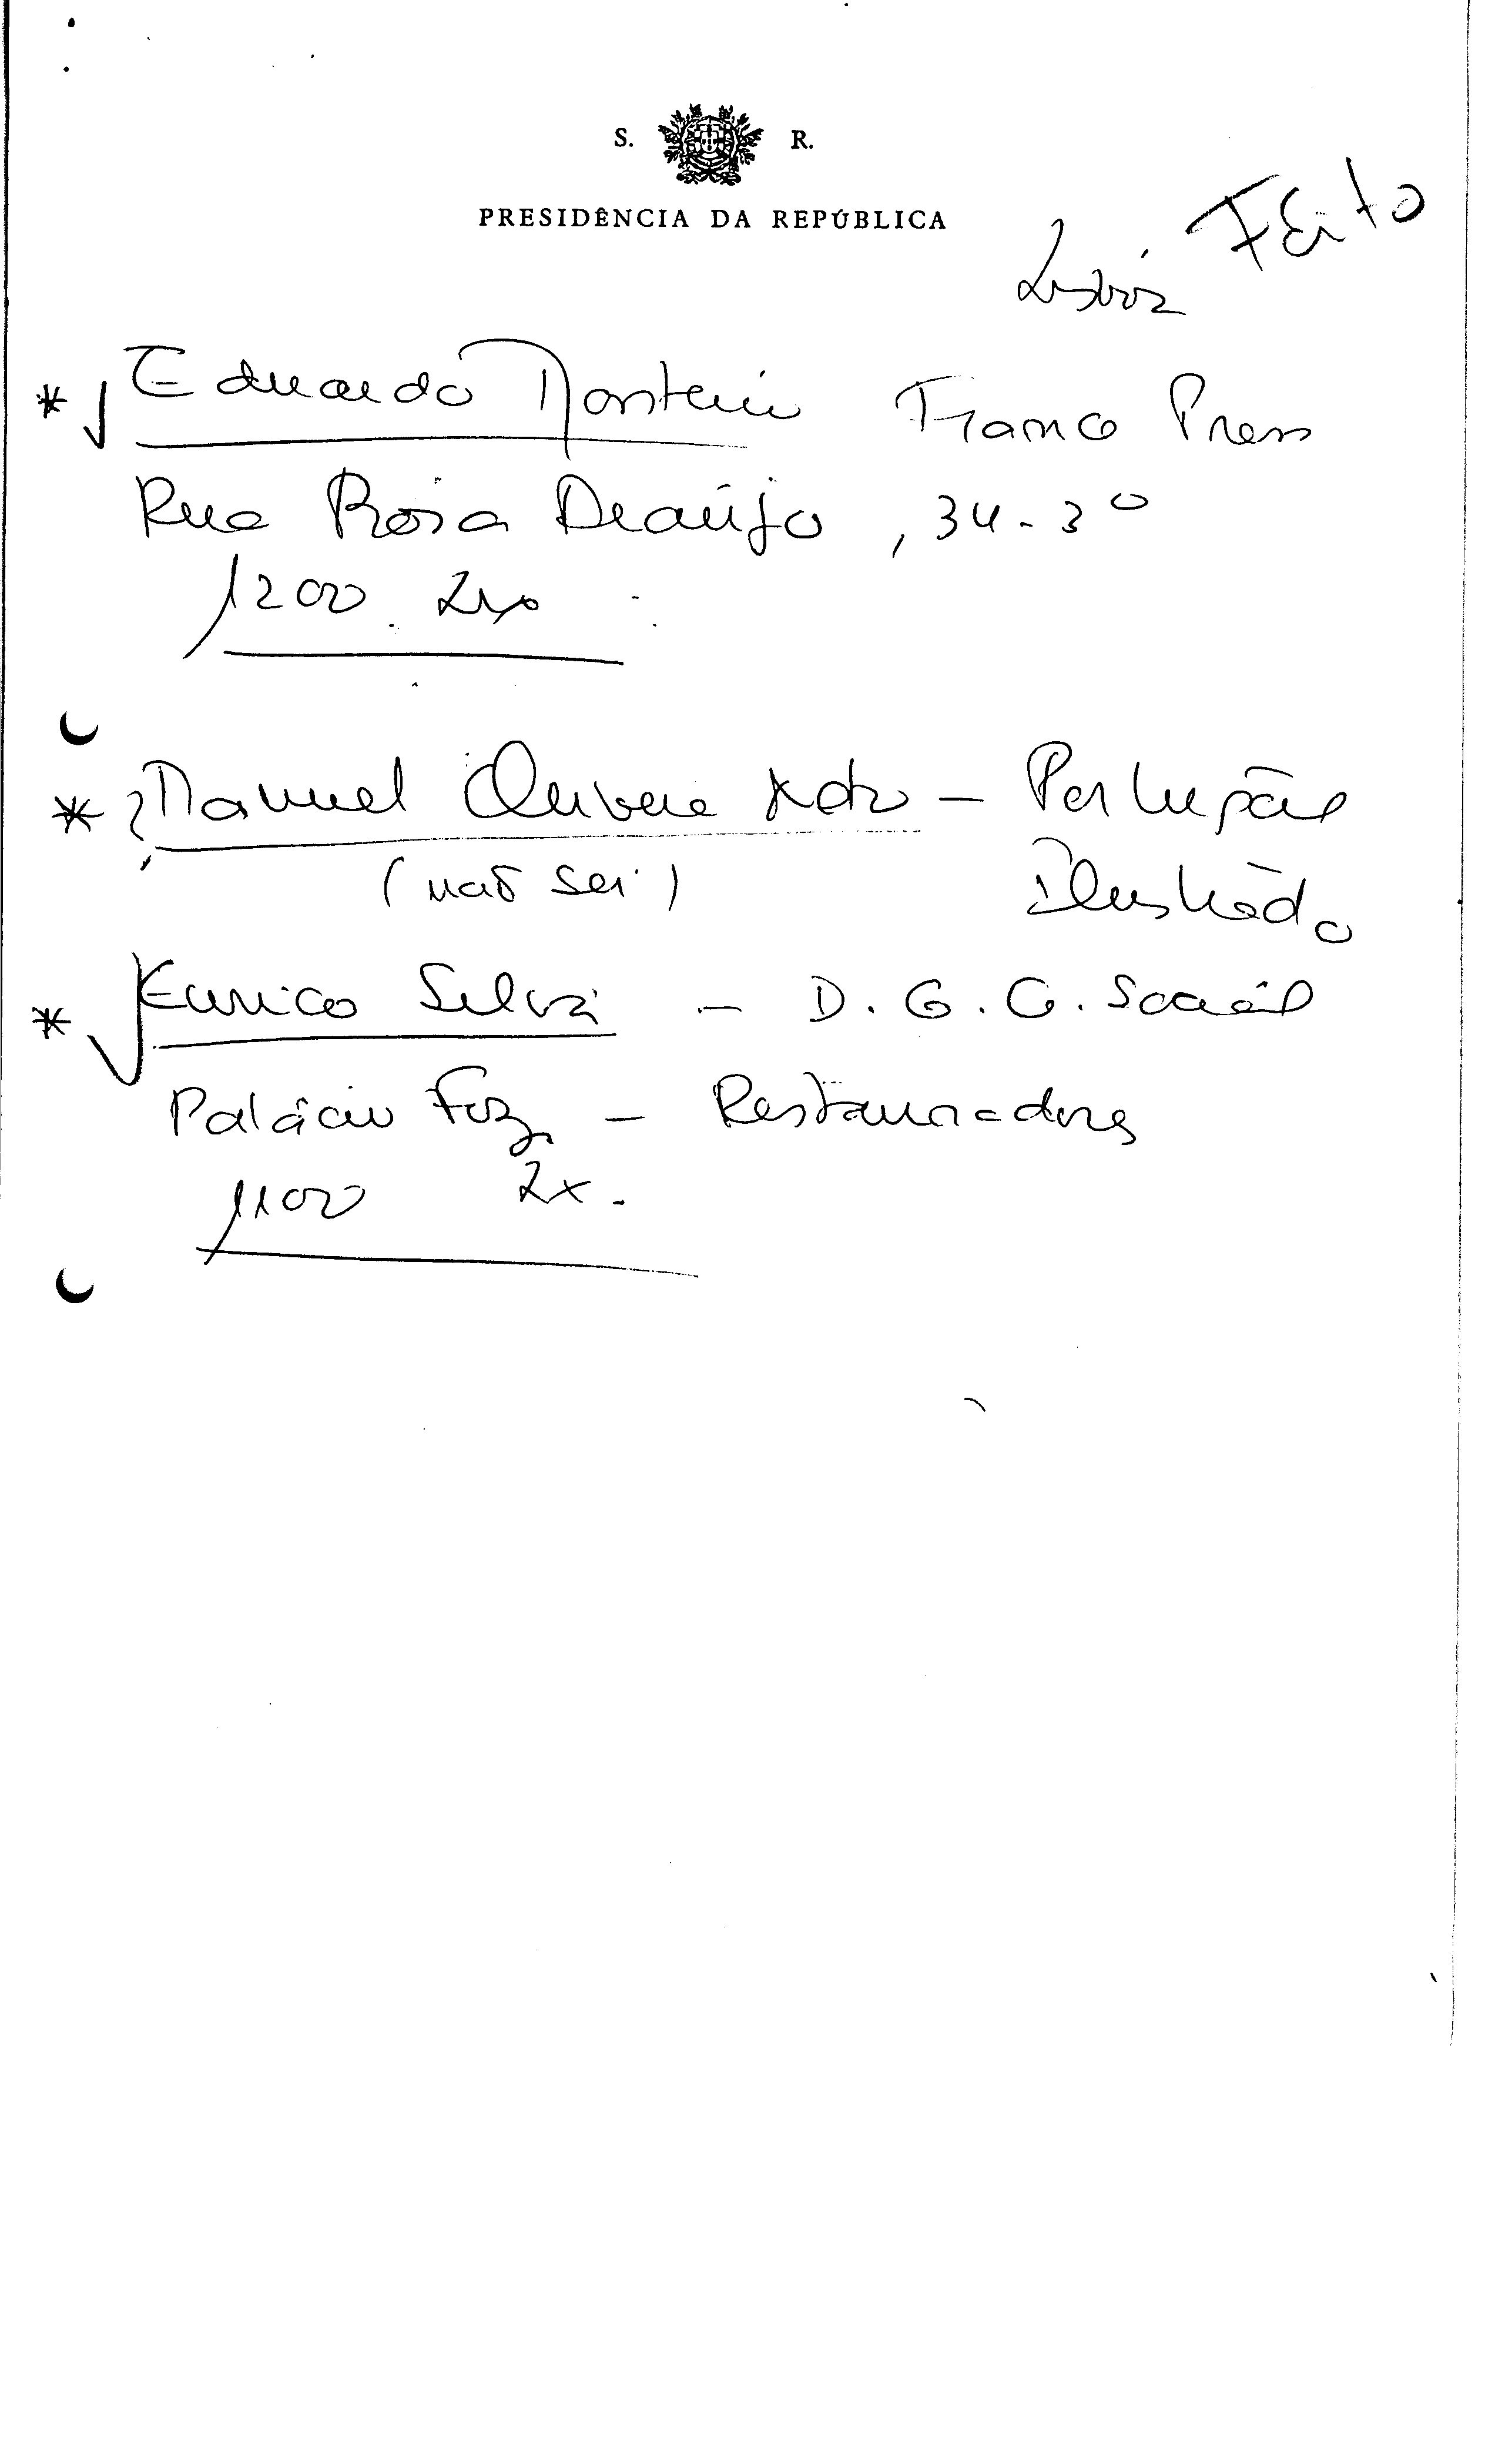 S. R.
PRESIDÊNCIA DA REPÚBLICA
Feito
Lisboa
* Eduardo Monteiro Franco Press
Rua Rosa Araújo, 34-3º
1200 Lx
* ? Manuel Oliveira - Portugal
(não sei) Ilustrado
* Eurico Silva - D. G. C. Social
Palácio Foz - Restauradores
1100 Lx.